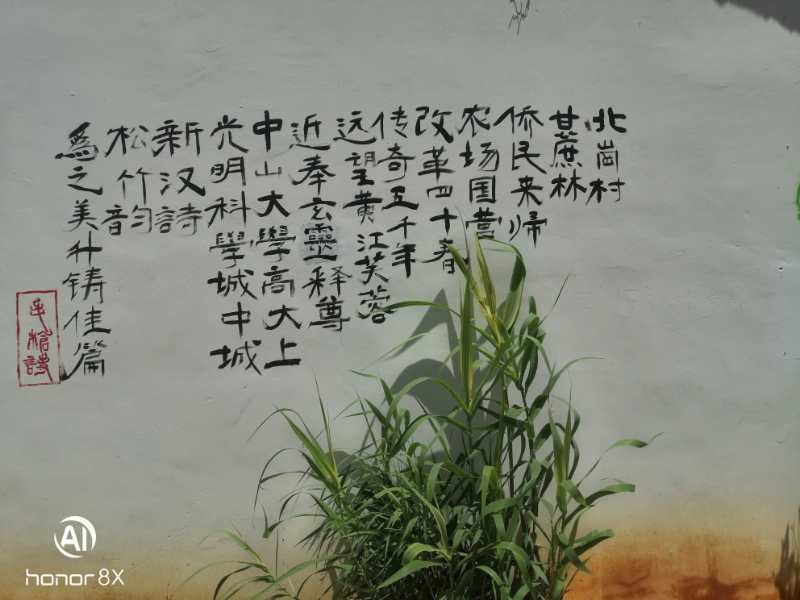 北岗村
甘蔗林
侨民来归
农场国营
改革四十春
传奇五千年
远望黄江芙蓉
近奉玄靈释尊
中山大學高大上
光明科學城中城
新汉詩
松竹韵
為之美升铸佳篇
AI
honor 8X